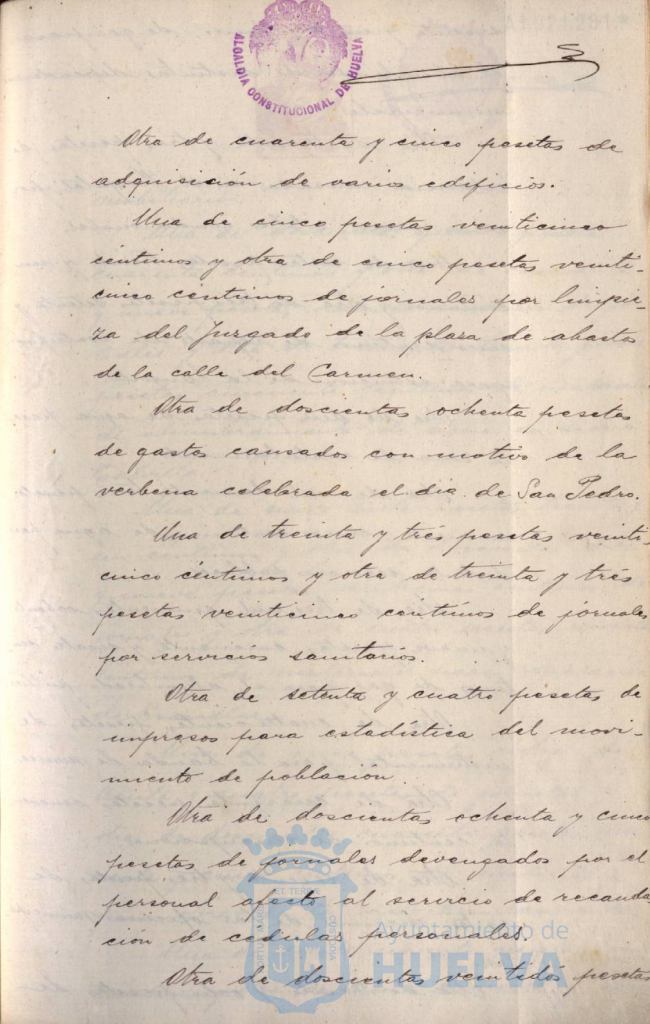 ALCALDIA CONSTITUCIONAL DE HUELVA
Otra de cuarenta y cinco pesetas de
adquisición de varios edificios.
Una de cinco pesetas veinticinco
céntimos y otra de cinco pesetas veinti-
cinco céntimos de jornales por limpie-
za del Juzgado de la plaza de abastos
de la calle del Carmen.
Otra de doscientas ochenta pesetas
de gastos causados con motivo de la
verbena celebrada el dia de San Pedro.
Una de treinta y trés pesetas veinti-
cinco céntimos y otra de treinta y trés
pesetas veinticinco centimos de jornales
por servicios sanitarios.
Otra de setenta y cuatro pesetas de
impresos para estadística del movi-
miento de población.
Otra de doscientas ochenta y cinco
pesetas de jornales devengados por el
personal afecto al servicio de recauda-
ción de cedulas personales.
Otra de doscientas veintidós pesetas
Ayuntamiento de
HUELVA